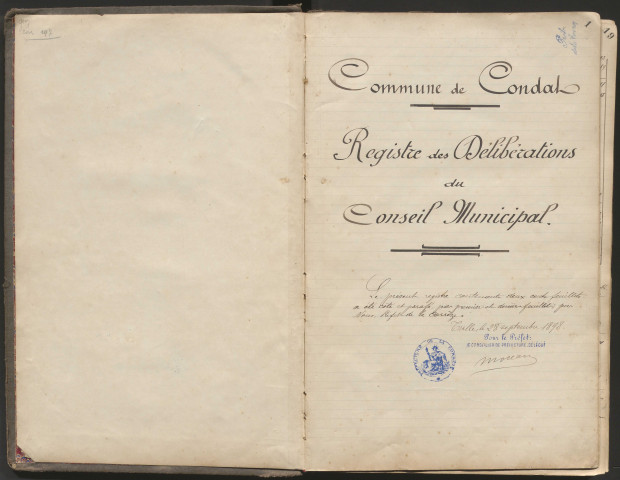 1
19
Commune de Condat
Registre des Délibérations
du
Conseil Municipal.
Le présent registre contenant deux cents feuillets
a été coté et parafé par premier et dernier feuillets par
Nous Préfet de la Corrèze.
Tulle, le 28 septembre 1898
Pour le Préfet:
LE CONSEILLER DE PRÉFECTURE DÉLÉGUÉ